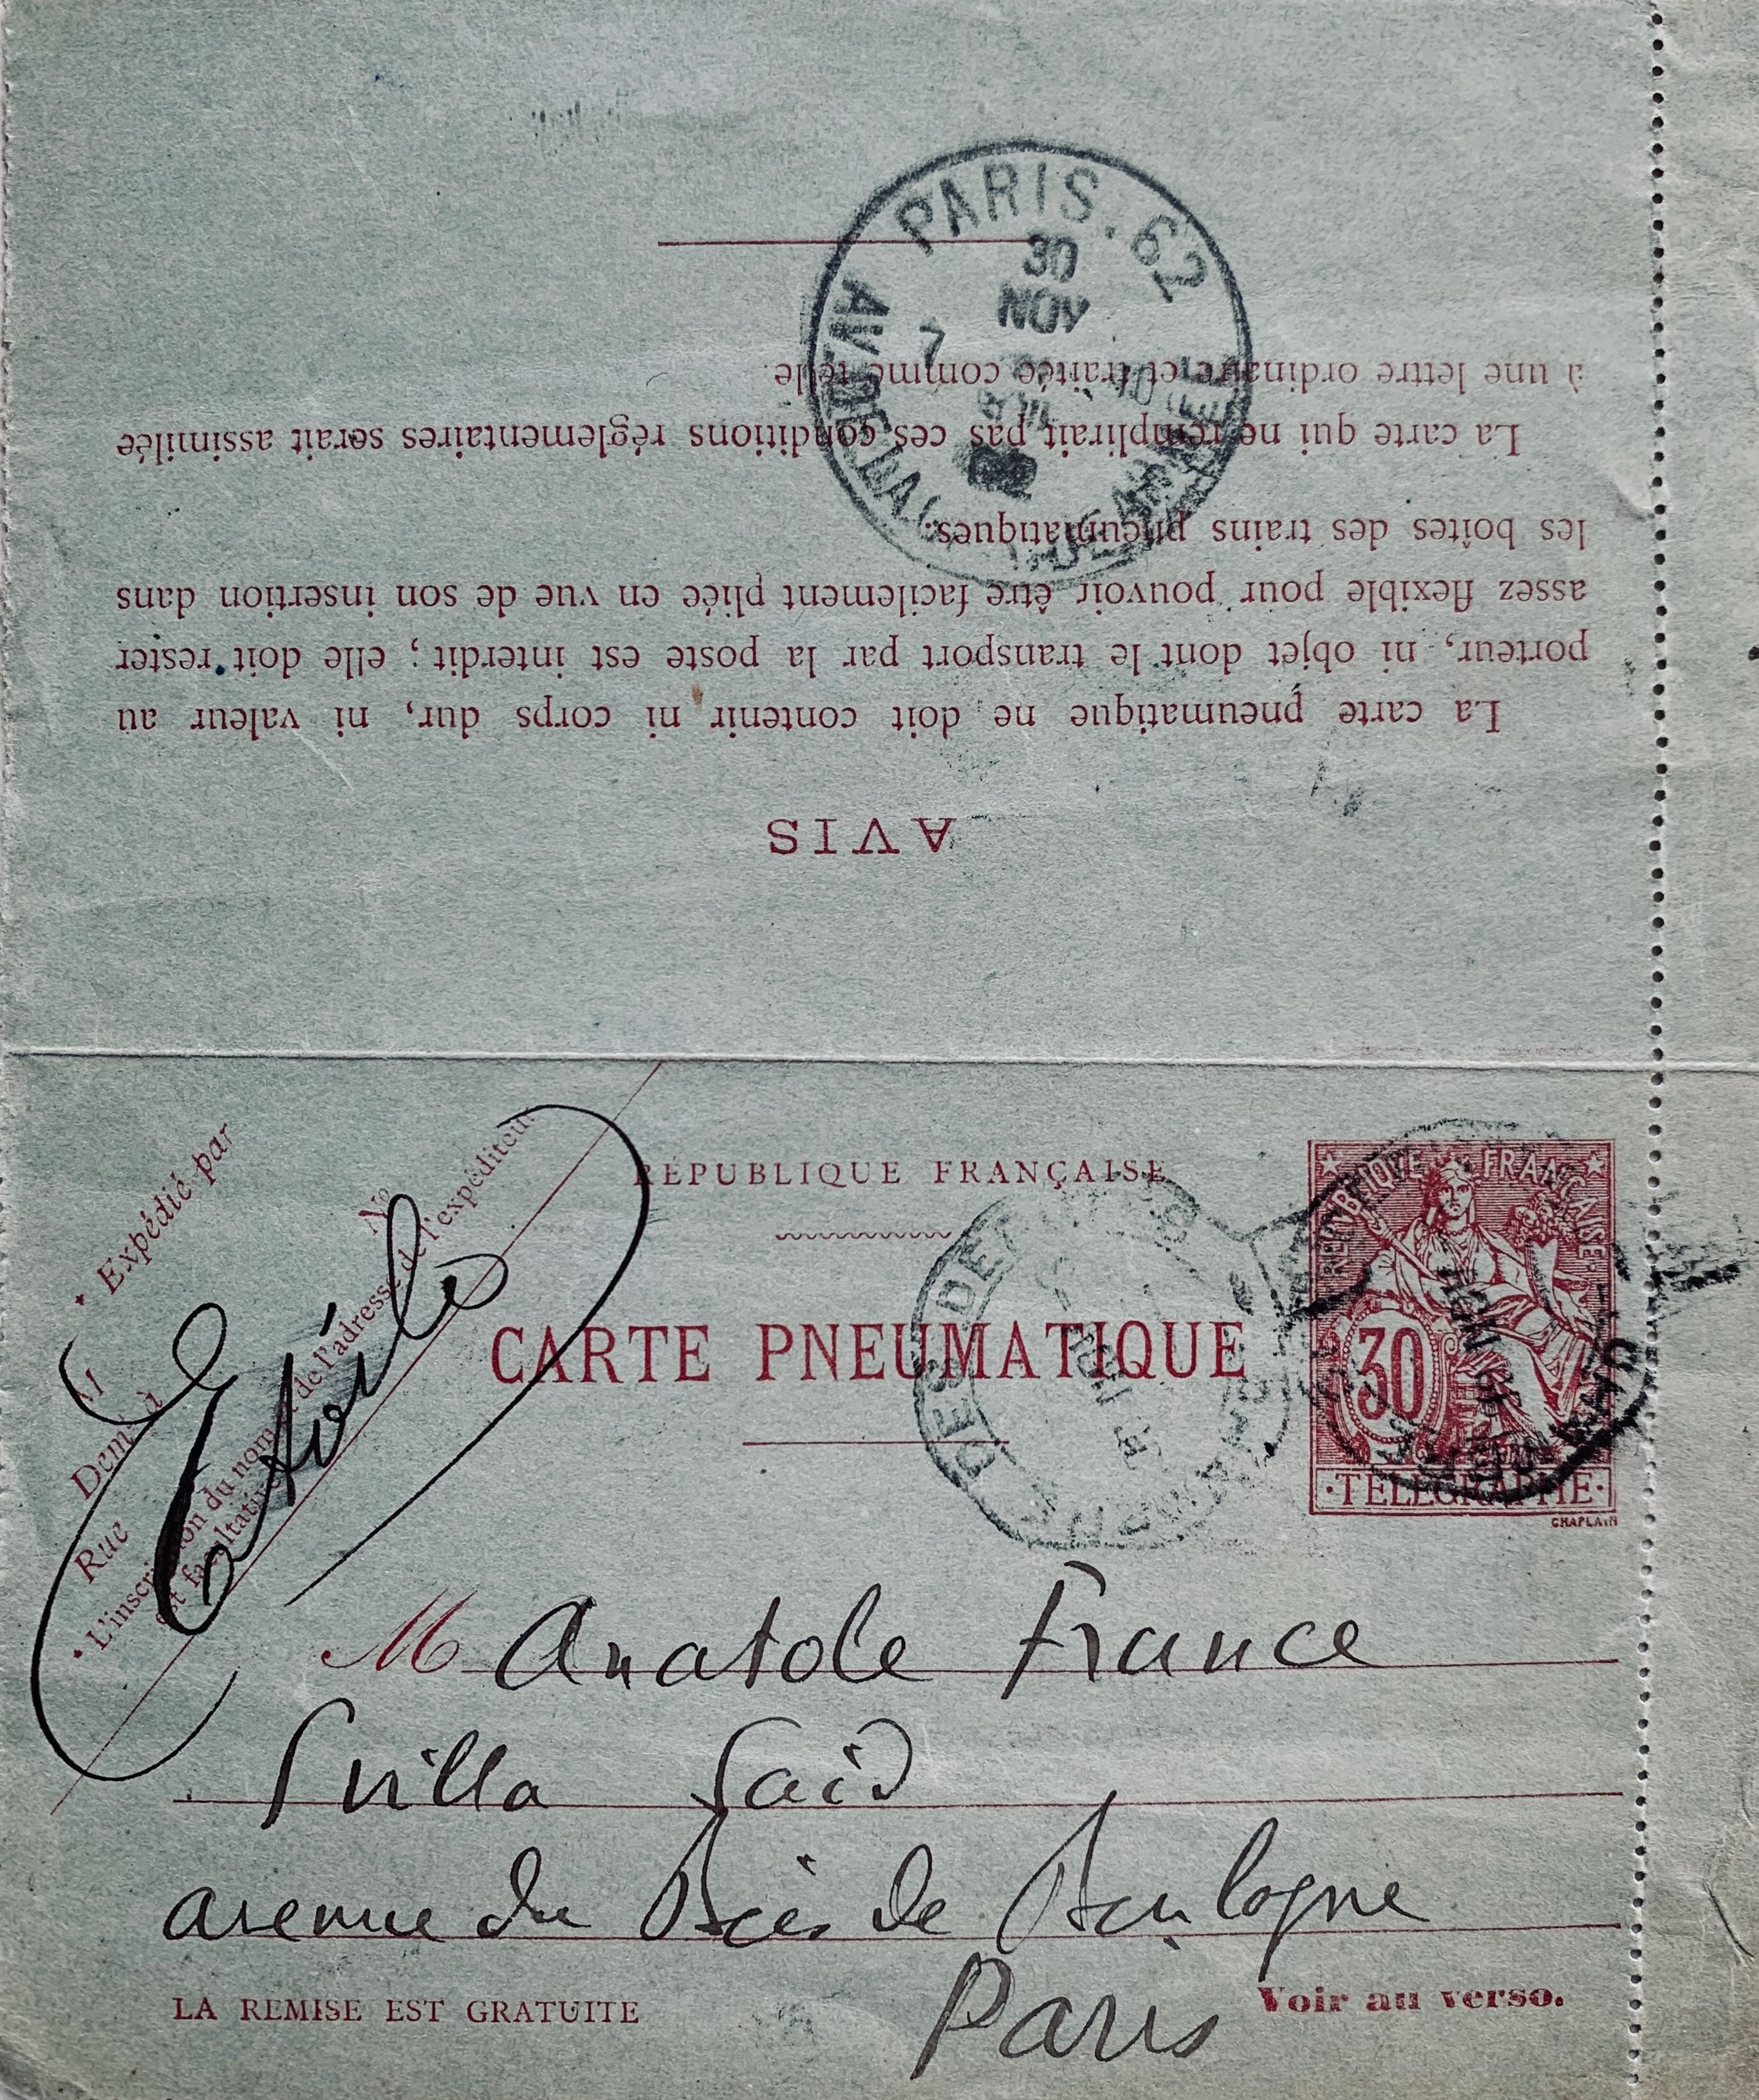 PARIS . 62
30
NOV
7
AVIS
La carte pneumatique ne doit contenir ni corps dur, ni valeur au
porteur, ni objet dont le transport par la poste est interdit ; elle doit rester
assez flexible pour pouvoir être facilement pliée en vue de son insertion dans
les boîtes des trains pneumatiques.
La carte qui ne remplirait pas ces conditions réglementaires serait assimilée
à une lettre ordinaire et traitée comme telle.
Expédié par
M
Demt à
Rue
No
* L'inscription du nom et de l'adresse de l'expéditeur
est facultative
Etoile
RÉPUBLIQUE FRANÇAISE
CARTE PNEUMATIQUE
REPUBLIQUE FRANÇAISE
30
·TÉLÉGRAPHE·
CHAPLAIN
M Anatole France
5 villa Saïd
avenue du Bois de Boulogne
Paris
LA REMISE EST GRATUITE
Voir au verso.